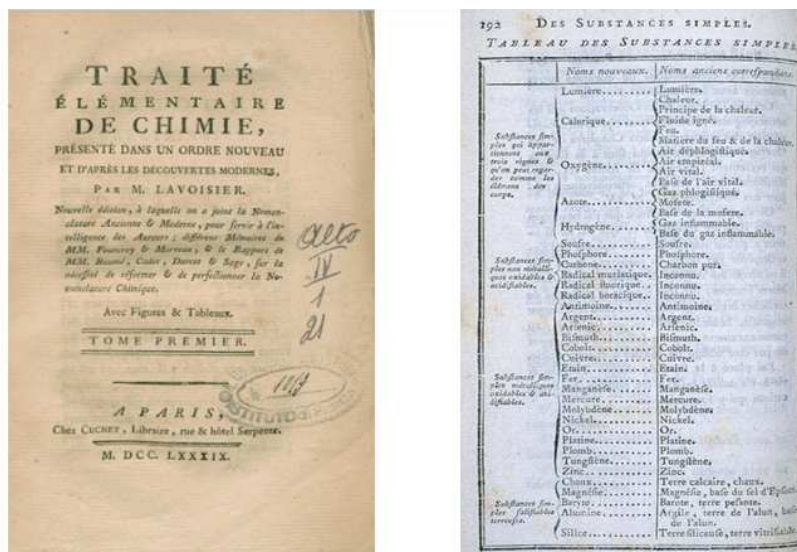 TRAITÉ
ÉLÉMENTAIRE
DE CHIMIE,
PRÉSENTÉ DANS UN ORDRE NOUVEAU
ET D'APRÈS LES DÉCOUVERTES MODERNES,
PAR M. LAVOISIER.
Nouvelle édition, à laquelle on a joint la Nomen-
clature Ancienne & Moderne, pour servir à l'in-
telligence des Auteurs ; différens Mémoires de
MM. Fourcroy & Morveau, & le Rapport de
MM. Baumé, Cadet, Darcet & Sage, sur la
nécessité de réformer & de perfectionner la No-
menclature Chimique.
Avec Figures & Tableaux.
TOME PREMIER.
A PARIS,
Chez CUCHET, Libraire, rue & hôtel Serpente.
M. DCC. LXXXIX.
alto
IV
1
21
192 DES SUBSTANCES SIMPLES.
TABLEAU DES SUBSTANCES SIMPLES.
Noms nouveaux. Noms anciens correspondans.
Substances sim-
ples qui appar-
tiennent aux
trois règnes &
qu'on peut regar-
der comme les
élémens des
corps.
Lumière......... Lumière.
Calorique........ Chaleur.
Principe de la chaleur.
Fluide igné.
Feu.
Matière du feu & de la chaleur.
Oxygène......... Air déphlogistiqué.
Air empiréal.
Air vital.
Base de l'air vital.
Azote........... Gaz phlogistiqué.
Mofete.
Base de la mofete.
Hydrogène....... Gaz inflammable.
Base du gaz inflammable.
Substances sim-
ples non métalli-
ques oxidables &
acidifiables.
Soufre.......... Soufre.
Phosphore....... Phosphore.
Carbone......... Charbon pur.
Radical muriatique. Inconnu.
Radical fluorique.. Inconnu.
Radical boracique.. Inconnu.
Substances sim-
ples métalliques
oxidables & aci-
difiables.
Antimoine....... Antimoine.
Argent.......... Argent.
Arsenic......... Arsenic.
Bismuth......... Bismuth.
Cobolt.......... Cobolt.
Cuivre.......... Cuivre.
Etain........... Etain.
Fer............. Fer.
Manganèse....... Manganèse.
Mercure......... Mercure.
Molybdène....... Molybdène.
Nickel.......... Nickel.
Or.............. Or.
Platine......... Platine.
Plomb........... Plomb.
Tungstène....... Tungstène.
Zinc............ Zinc.
Substances sim-
ples salifiables
terreuses.
Chaux........... Terre calcaire, chaux.
Magnésie........ Magnésie, base du sel d'Epsom.
Baryte.......... Barote, terre pesante.
Alumine......... Argile, terre de l'alun, base
de l'alun.
Silice.......... Terre siliceuse, terre vitrifiable.